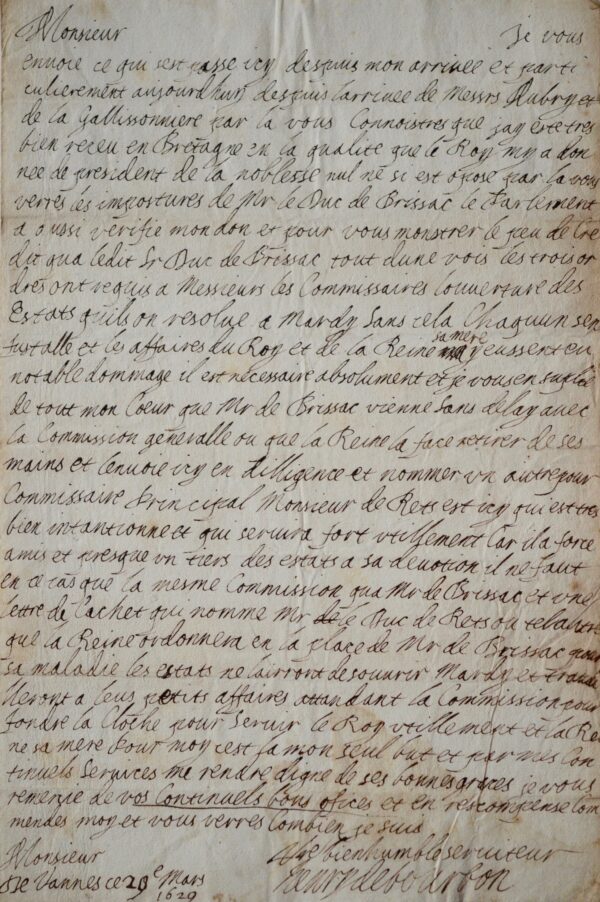 Monsieur Je vous
envoie ce qui sest passe icy despuis mon arrivee et parti
culierement aujourdhuy despuis larrivee de Messrs Aubry et
de la Gallissonniere par la vous Connoistres que jay este tres
bien receu en Bretagne en la qualite que le Roy my a don
nee de president de la noblesse nul ne si est opose par la vous
verres les impostures de Mr le Duc de Brissac le Parlement
a aussi verifie mon don et pour vous monstrer le peu de Cre
dit qua ledit Sr Duc de Brissac tout dune vois les trois or
dres ont requis a Messieurs les Commissaires louverture des
Estats quils on resolue a Mardy Sans cela Chaquun sen
fust alle et les affaires du Roy et de la Reine sa mere y eussent eu
notable dommage il est necessaire absolument et je vous en suplie
de tout mon Coeur que Mr de Brissac vienne Sans delay avec
la Commission generalle ou que la Reine la face retirer de ses
mains et lenvoie icy en dilligence et nommer un autre pour
Commissaire Principal Monsieur de Rets est icy qui est tres
bien intantionne et qui servira fort utillement Car il a force
amis et presque un tiers des estats a sa devotion il ne faut
en ce cas que la mesme Commission qua Mr de Brissac et une
lettre de Cachet qui nomme Mr le Duc de Rets ou tel autre
que la Reine ordonnera en la place de Mr de Brissac pour
sa maladie les estats ne lairront de souvrir Mardy et travail
lleront a leus petits affaires attandant la Commission pour
fondre la Cloche pour Servir le Roy utillement et la Rei
ne sa mere pour moy cest la mon seul but et par mes Con
tinuels Services me rendre digne de ses bonnes graces je vous
remersie de vos Continuels bons ofices et en rescompense Com
mendes moy et vous verres Combien je suis
Monsieur Vre bien humble serviteur
De Vannes ce 29e Mars Henry de bourbon
1629